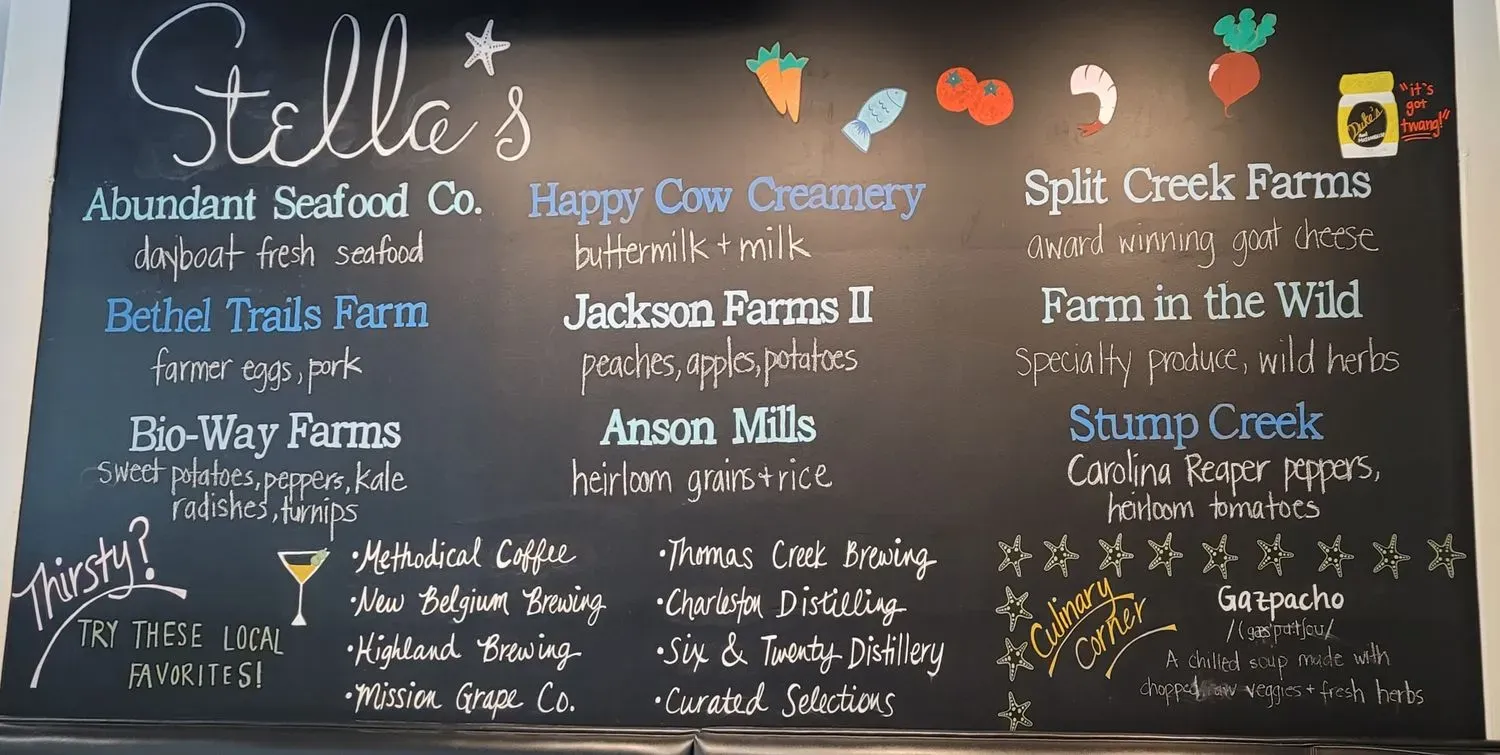 Stella's
Duke's
"it's
got
twang!"
Abundant Seafood Co.
dayboat fresh seafood
Happy Cow Creamery
buttermilk + milk
Split Creek Farms
award winning goat cheese
Bethel Trails Farm
farmer eggs, pork
Jackson Farms II
peaches, apples, potatoes
Farm in the Wild
Specialty produce, wild herbs
Bio-Way Farms
Sweet potatoes, peppers, kale
radishes, turnips
Anson Mills
heirloom grains + rice
Stump Creek
Carolina Reaper peppers,
heirloom tomatoes
Thirsty?
TRY THESE LOCAL
FAVORITES!
•Methodical Coffee
•New Belgium Brewing
•Highland Brewing
•Mission Grape Co.
•Thomas Creek Brewing
•Charleston Distilling
•Six & Twenty Distillery
•Curated Selections
Culinary
Corner
Gazpacho
A chilled soup made with
chopped, raw veggies + fresh herbs